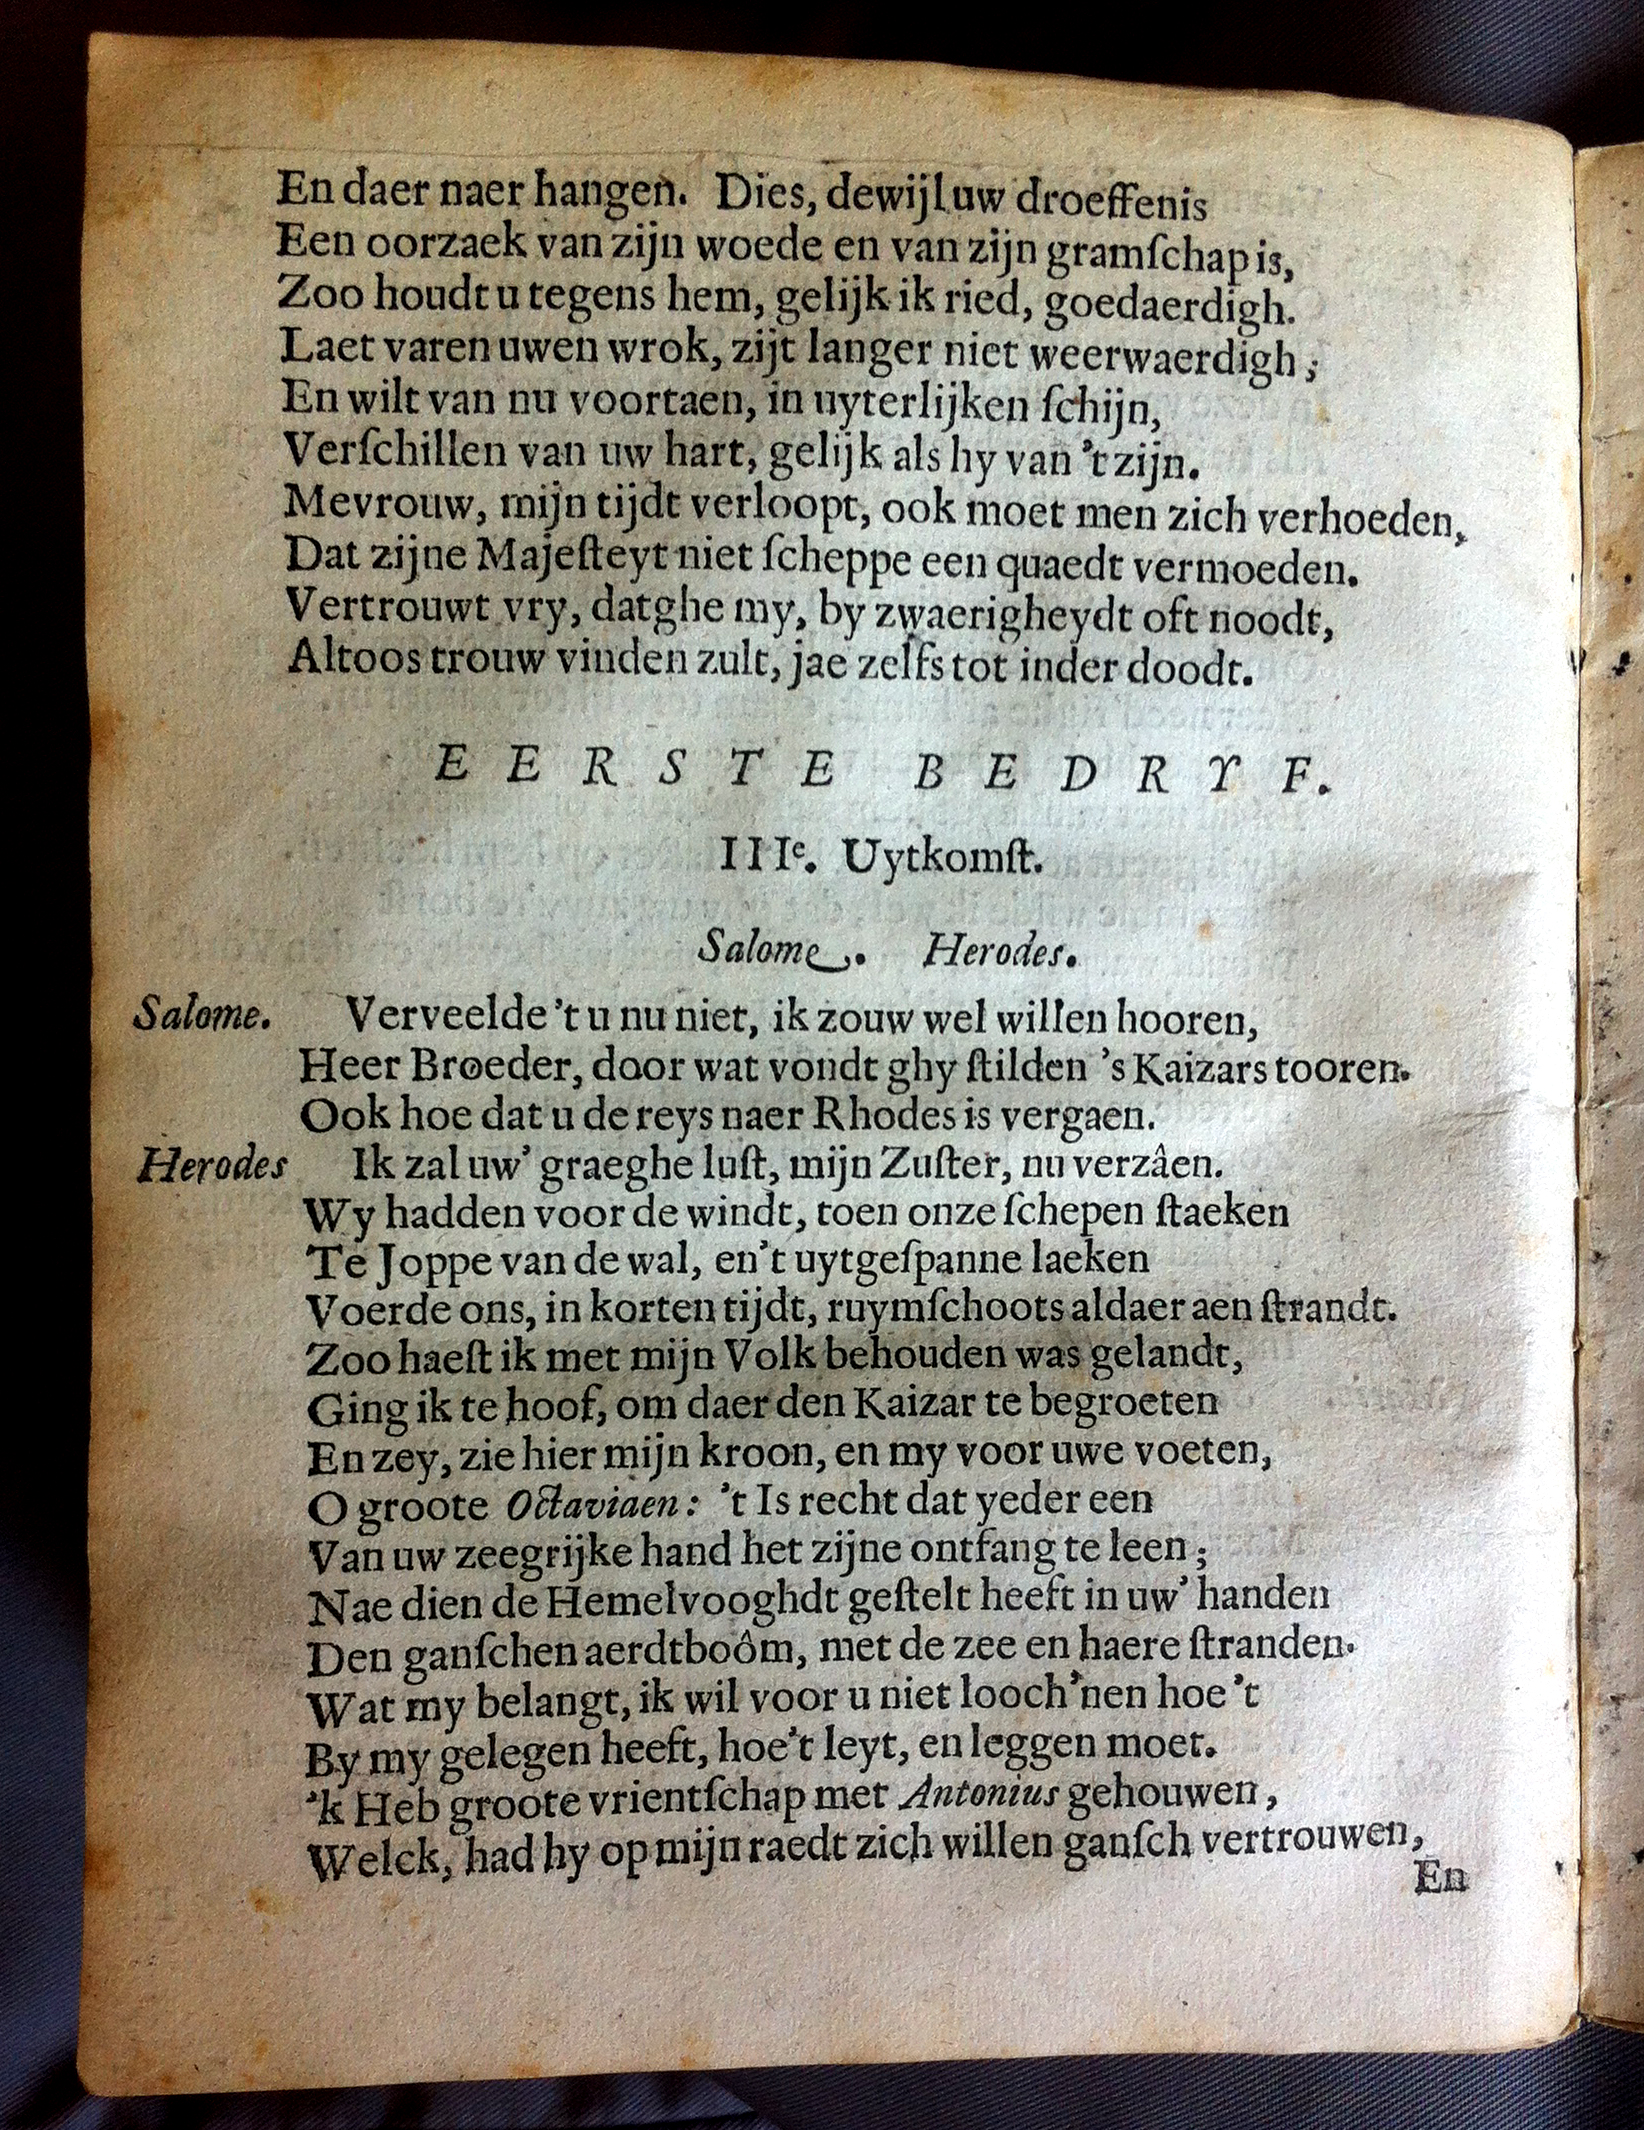 En daer naer hangen. Dies, dewijl uw droeffenis
Een oorzaek van zijn woede en van zijn gramſchap is,
Zoo houdt u tegens hem, gelijk ik ried, goedaerdigh.
Laet varen uwen wrok, zijt langer niet weerwaerdigh;
En wilt van nu voortaen, in uyterlijken ſchijn,
Verſchillen van uw hart, gelijk als hy van 't zijn.
Mevrouw, mijn tijdt verloopt, ook moet men zich verhoeden,
Dat zijne Majeſteyt niet ſcheppe een quaedt vermoeden.
Vertrouwt vry, dat ghe my, by zwaerigheydt oft noodt,
Altoos trouw vinden zult, jae zelfs tot inder doodt.
EERSTE BEDRYF.
IIIe. Uytkomſt.
Salome. Herodes.
Salome. Verveelde 't u nu niet, ik zouw wel willen hooren,
Heer Broeder, door wat vondt ghy ſtilden 's Kaizars tooren.
Ook hoe dat u de reys naer Rhodes is vergaen.
Herodes Ik zal uw' graeghe luſt, mijn Zuſter, nu verzâen.
Wy hadden voor de windt, toen onze ſchepen ſtaeken
Te Joppe van de wal, en 't uytgeſpanne laeken
Voerde ons, in korten tijdt, ruymſchoots aldaer aen ſtrandt.
Zoo haeſt ik met mijn Volk behouden was gelandt,
Ging ik te hoof, om daer den Kaizar te begroeten
En zey, zie hier mijn kroon, en my voor uwe voeten,
O groote Octaviaen: 't Is recht dat yeder een
Van uw zeegrijke hand het zijne ontfang te leen;
Nae dien de Hemelvooghdt geſtelt heeft in uw' handen
Den ganſchen aerdtboôm, met de zee en haere ſtranden.
Wat my belangt, ik wil voor u niet looch'nen hoe 't
By my gelegen heeft, hoe 't leyt, en leggen moet.
'k Heb groote vrientſchap met Antonius gehouwen,
Welck, had hy op mijn raedt zich willen ganſch vertrouwen,
En